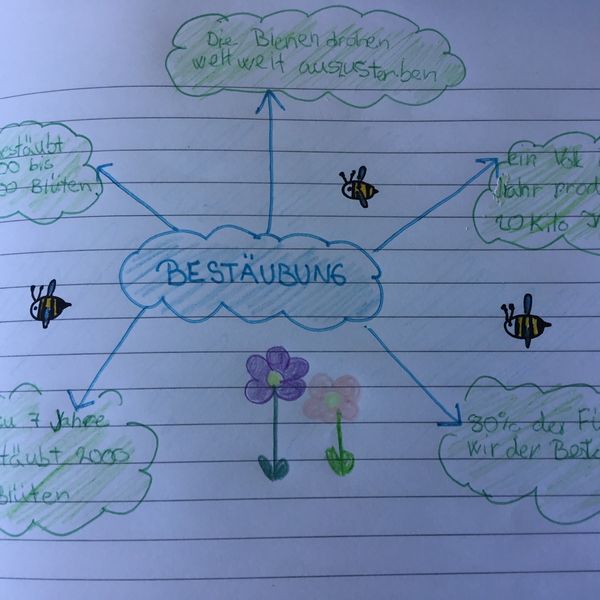 Die Bienen drohen
weltweit auszusterben
estäubt
00 bis
00 Blüten
ein Volk
Jahr prod
20 Kilo
BESTÄUBUNG
7 Jahre
täubt 2000
Blüten
80% der
wir der Best